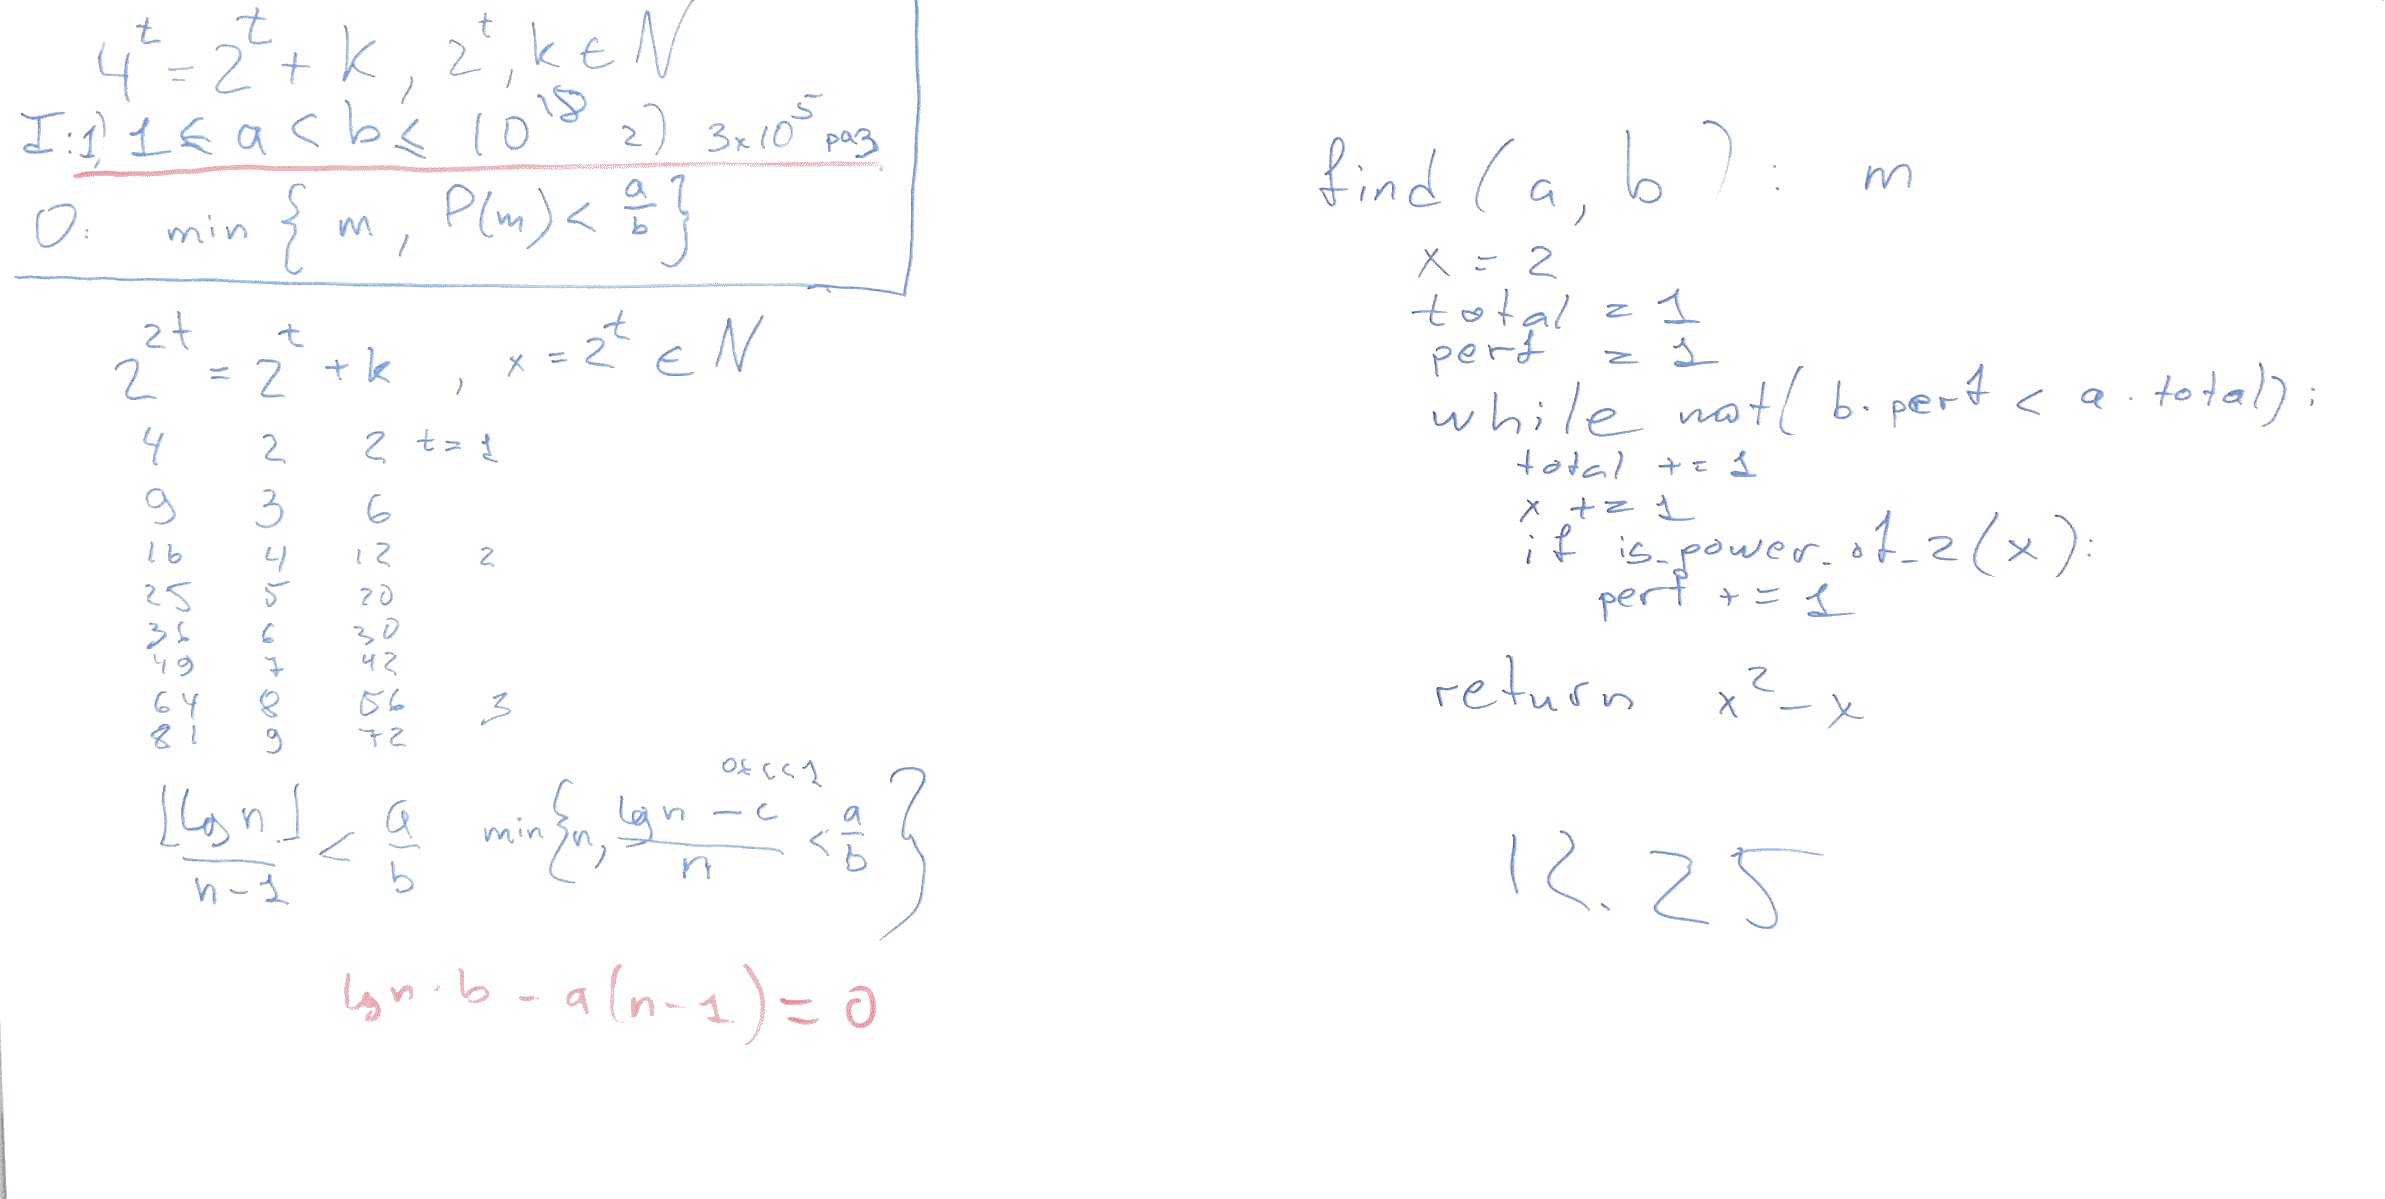 4^t = 2^t + k, 2^t, k ∈ N
I: 1) 1 ≤ a < b ≤ 10^18 2) 3x10^5 раз
O: min { m, P(m) < a/b }
2^2t = 2^t + k, x = 2^t ∈ N
4 2 2 t = 1
9 3 6
16 4 12 2
25 5 20
36 6 30
49 7 42
64 8 56 3
81 9 72
0≤c<1
⌊log n⌋/(n-1) < a/b min{n, (log n - c)/n < a/b}
log n · b - a(n-1) = 0
find(a, b): m
x = 2
total = 1
perf = 1
while not(b · perf < a · total):
total += 1
x += 1
if is_power_of_2(x):
perf += 1
return x^2 - x
12.25